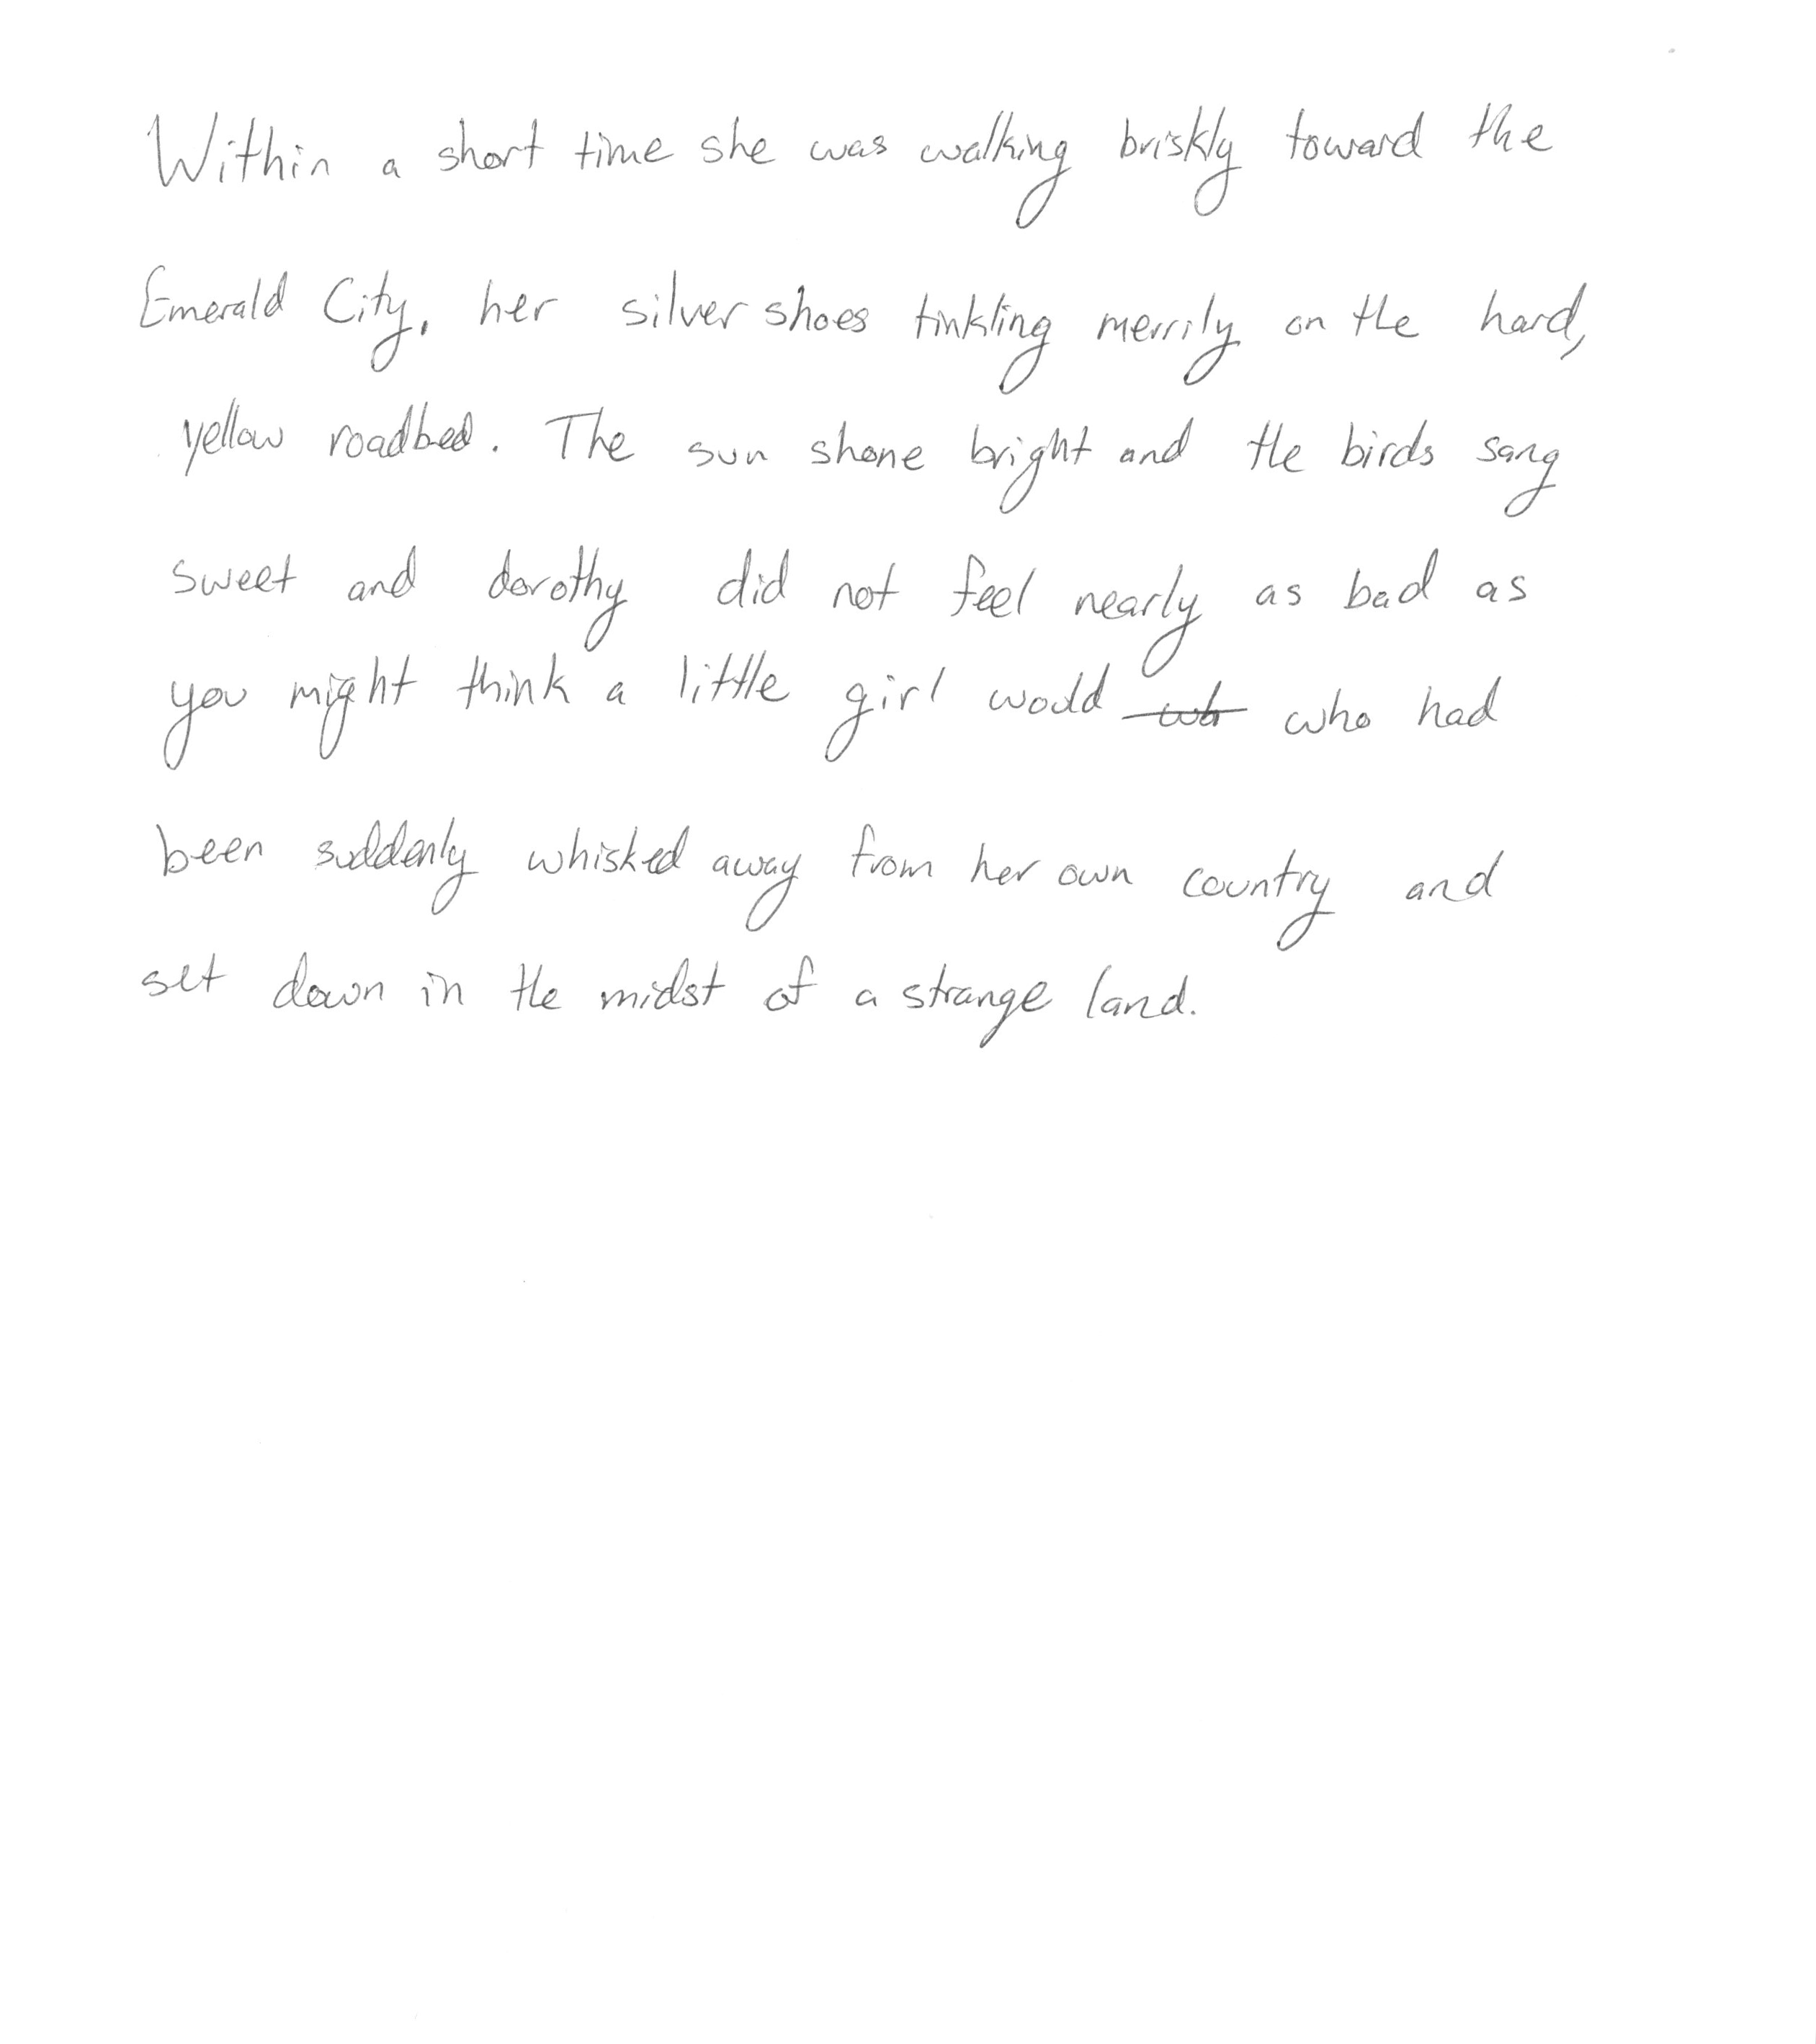 Within a short time she was walking briskly toward the
Emerald City, her silver shoes tinkling merrily on the hard,
yellow roadbed. The sun shone bright and the birds sang
sweet and dorothy did not feel nearly as bad as
you might think a little girl would who had
been suddenly whisked away from her own country and
set down in the midst of a strange land.